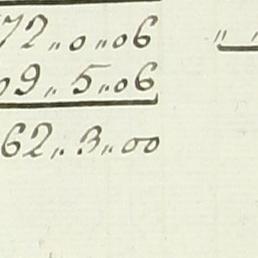 72 „ 0 „ 06 „
9 „ 5 „ 06
62 „ 3 „ 00